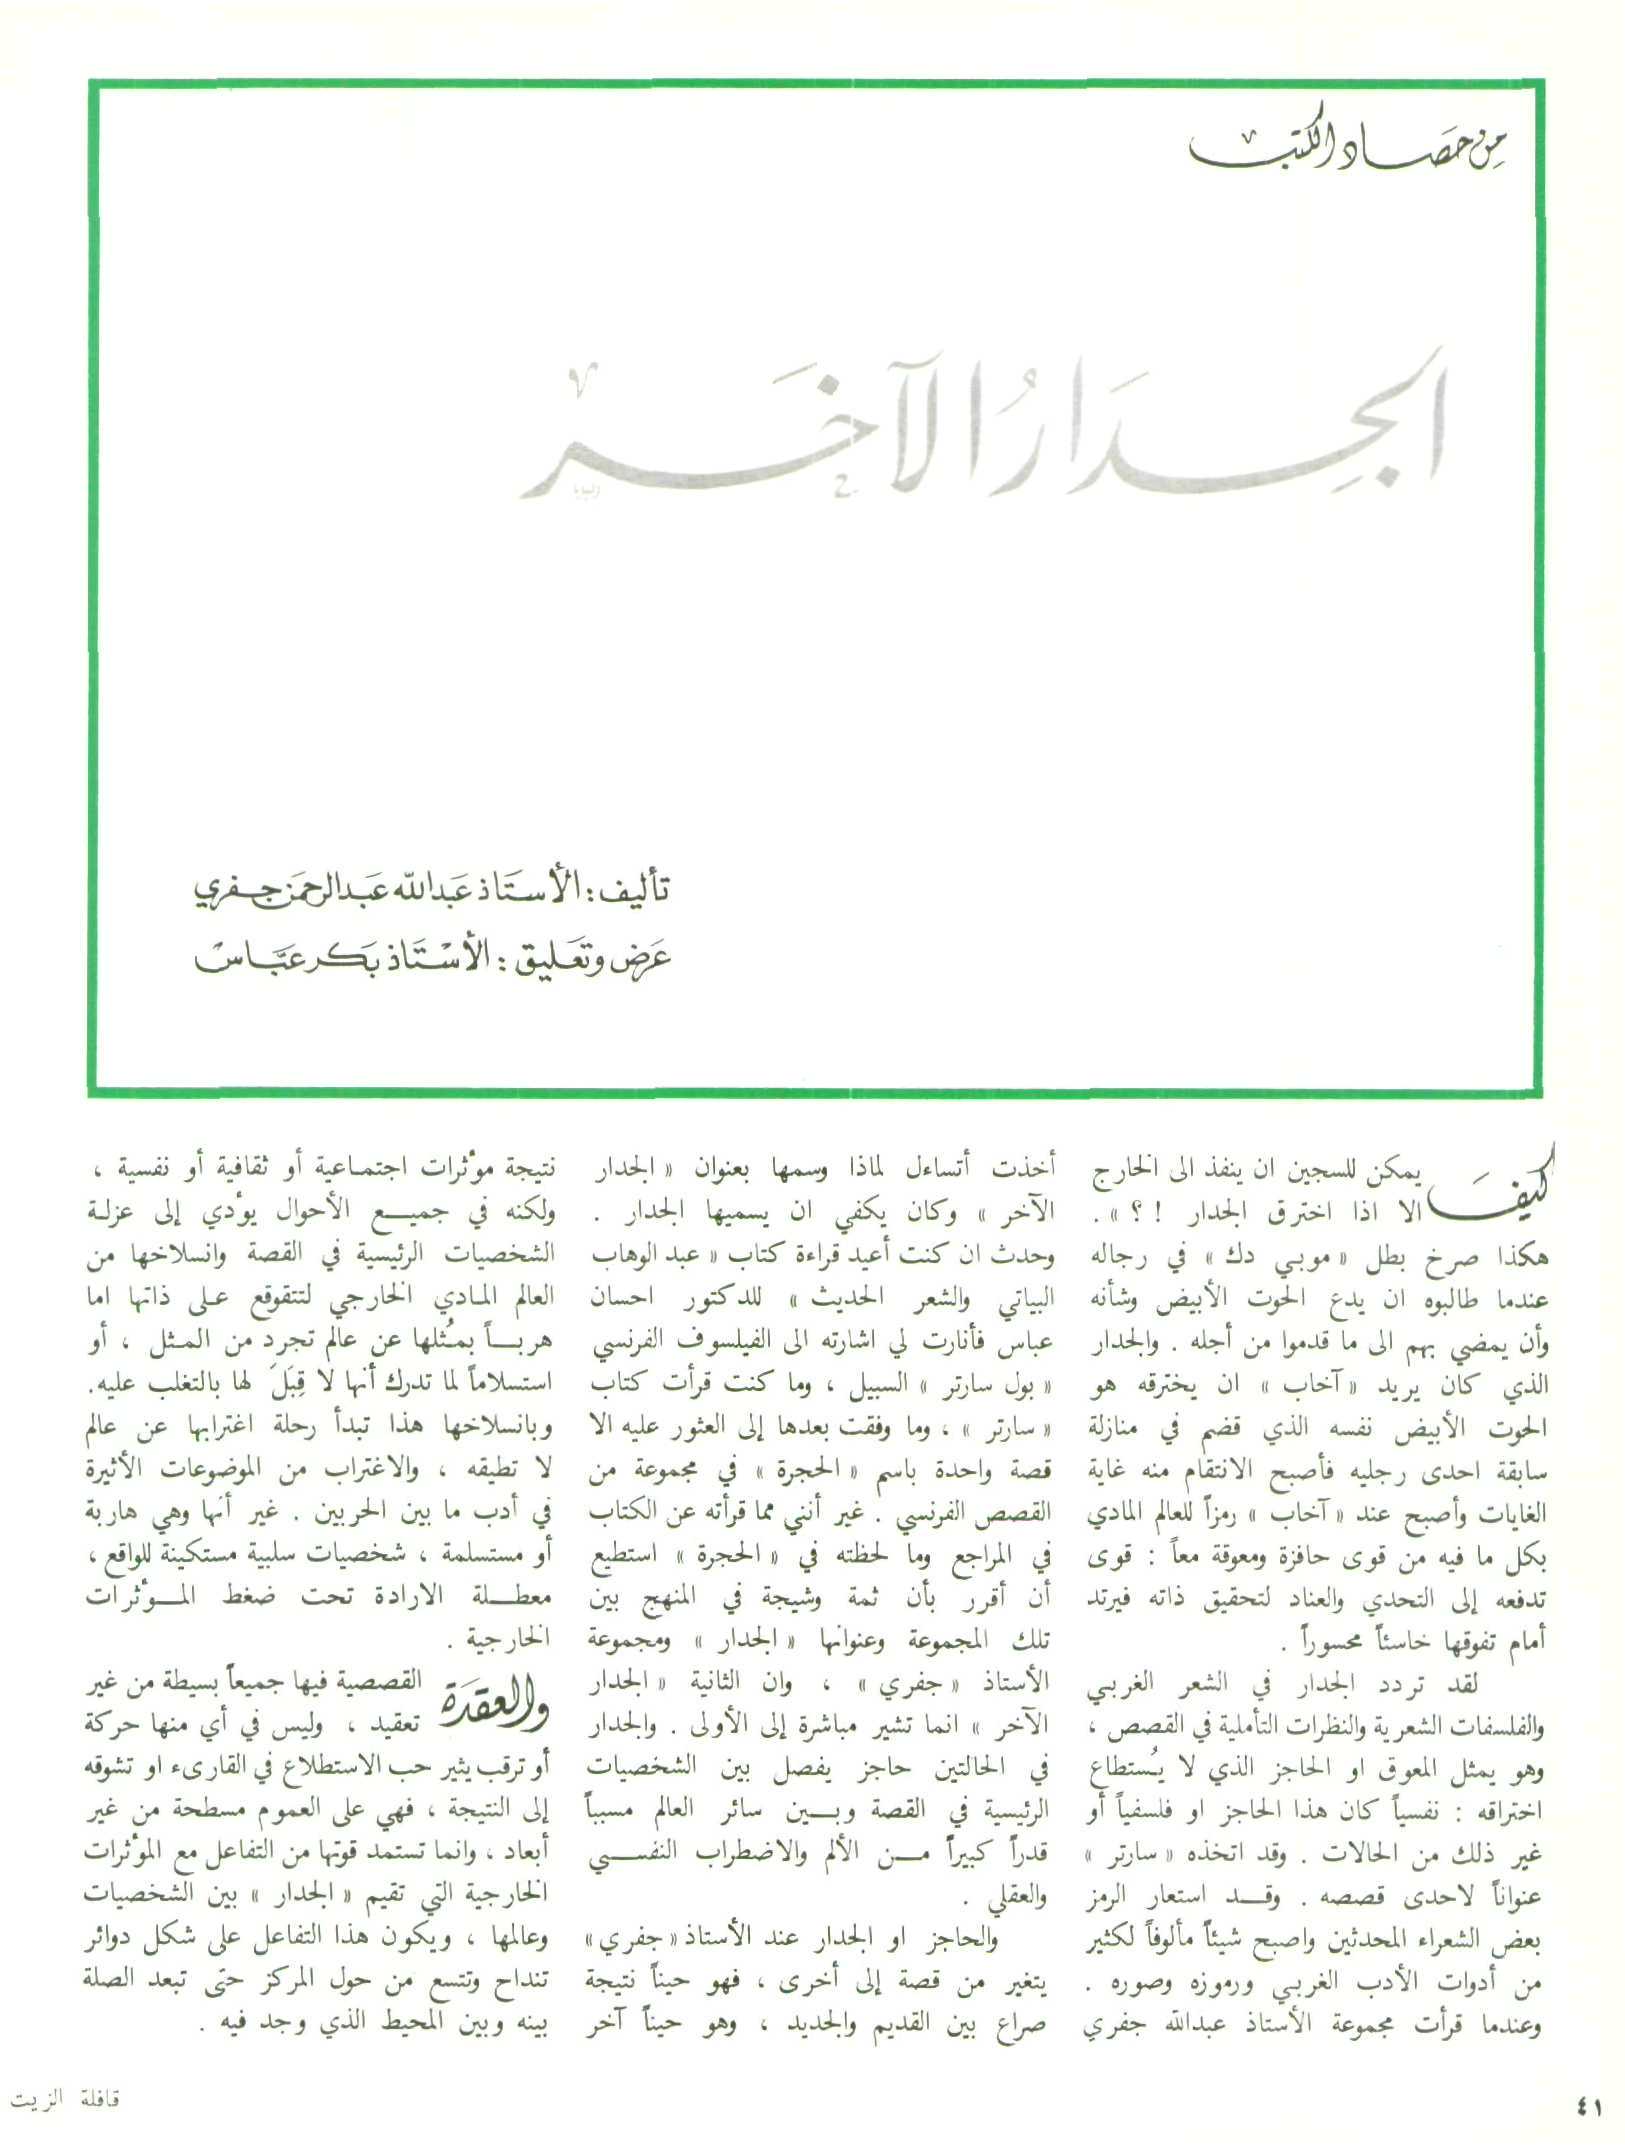 من حصاد الكتب
الجدار الآخر
تأليف : الأستاذ عبدالله عبدالرحمن جفري
عرض وتعليق : الأستاذ بكر عباس
كيف يمكن للسجين ان ينفذ الى الخارج
الا اذا اخترق الجدار ! ؟ » .
هكذا صرخ بطل « موبي دك » في رجاله
عندما طالبوه ان يدع الحوت الأبيض وشأنه
وأن يمضي بهم الى ما قدموا من أجله . والجدار
الذي كان يريد « آخاب » ان يخترقه هو
الحوت الأبيض نفسه الذي قضم في منازلة
سابقة احدى رجليه فأصبح الانتقام منه غاية
الغايات وأصبح عند « آخاب » رمزاً للعالم المادي
بكل ما فيه من قوى حافزة ومعوقة معاً : قوى
تدفعه إلى التحدي والعناد لتحقيق ذاته فيرتد
أمام تفوقها خاسئاً محسوراً .
لقد تردد الجدار في الشعر الغربي
والفلسفات الشعرية والنظرات التأملية في القصص ،
وهو يمثل المعوق او الحاجز الذي لا يُستطاع
اختراقه : نفسياً كان هذا الحاجز او فلسفياً أو
غير ذلك من الحالات . وقد اتخذه « سارتر »
عنواناً لاحدى قصصه . وقد استعار الرمز
بعض الشعراء المحدثين واصبح شيئاً مألوفاً لكثير
من أدوات الأدب الغربي ورموزه وصوره .
وعندما قرأت مجموعة الأستاذ عبدالله جفري
أخذت أتساءل لماذا وسمها بعنوان « الجدار
الآخر » وكان يكفي ان يسميها الجدار .
وحدث ان كنت أعيد قراءة كتاب « عبد الوهاب
البياتي والشعر الحديث » للدكتور احسان
عباس فأنارت لي اشارته الى الفيلسوف الفرنسي
« بول سارتر » السبيل ، وما كنت قرأت كتاب
« سارتر » ، وما وفقت بعدها إلى العثور عليه الا
قصة واحدة باسم « الحجرة » في مجموعة من
القصص الفرنسي . غير أنني مما قرأته عن الكتاب
في المراجع وما لحظته في « الحجرة » استطيع
أن أقرر بأن ثمة وشيجة في المنهج بين
تلك المجموعة وعنوانها « الجدار » ومجموعة
الأستاذ « جفري » ، وان الثانية « الجدار
الآخر » انما تشير مباشرة إلى الأولى . والجدار
في الحالتين حاجز يفصل بين الشخصيات
الرئيسية في القصة وبين سائر العالم مسبباً
قدراً كبيراً من الألم والاضطراب النفسي
والعقلي .
والحاجز او الجدار عند الأستاذ « جفري »
يتغير من قصة إلى أخرى ، فهو حيناً نتيجة
صراع بين القديم والجديد ، وهو حيناً آخر
نتيجة مؤثرات اجتماعية أو ثقافية أو نفسية ،
ولكنه في جميع الأحوال يؤدي إلى عزلة
الشخصيات الرئيسية في القصة وانسلاخها من
العالم المادي الخارجي لتتقوقع على ذاتها اما
هرباً بمُثلها عن عالم تجرد من المثل ، أو
استسلاماً لما تدرك أنها لا قِبَلَ لها بالتغلب عليه.
وبانسلاخها هذا تبدأ رحلة اغترابها عن عالم
لا تطيقه ، والاغتراب من الموضوعات الأثيرة
في أدب ما بين الحربين . غير أنها وهي هاربة
أو مستسلمة ، شخصيات سلبية مستكينة للواقع ،
معطلة الارادة تحت ضغط المؤثرات
الخارجية .
والعقدة القصصية فيها جميعاً بسيطة من غير
تعقيد ، وليس في أي منها حركة
أو ترقب يثير حب الاستطلاع في القارىء او تشوقه
إلى النتيجة ، فهي على العموم مسطحة من غير
أبعاد ، وانما تستمد قوتها من التفاعل مع المؤثرات
الخارجية التي تقيم « الجدار » بين الشخصيات
وعالمها ، ويكون هذا التفاعل على شكل دوائر
تنداح وتتسع من حول المركز حتى تبعد الصلة
بينه وبين المحيط الذي وجد فيه .
٤١
قافلة الزيت